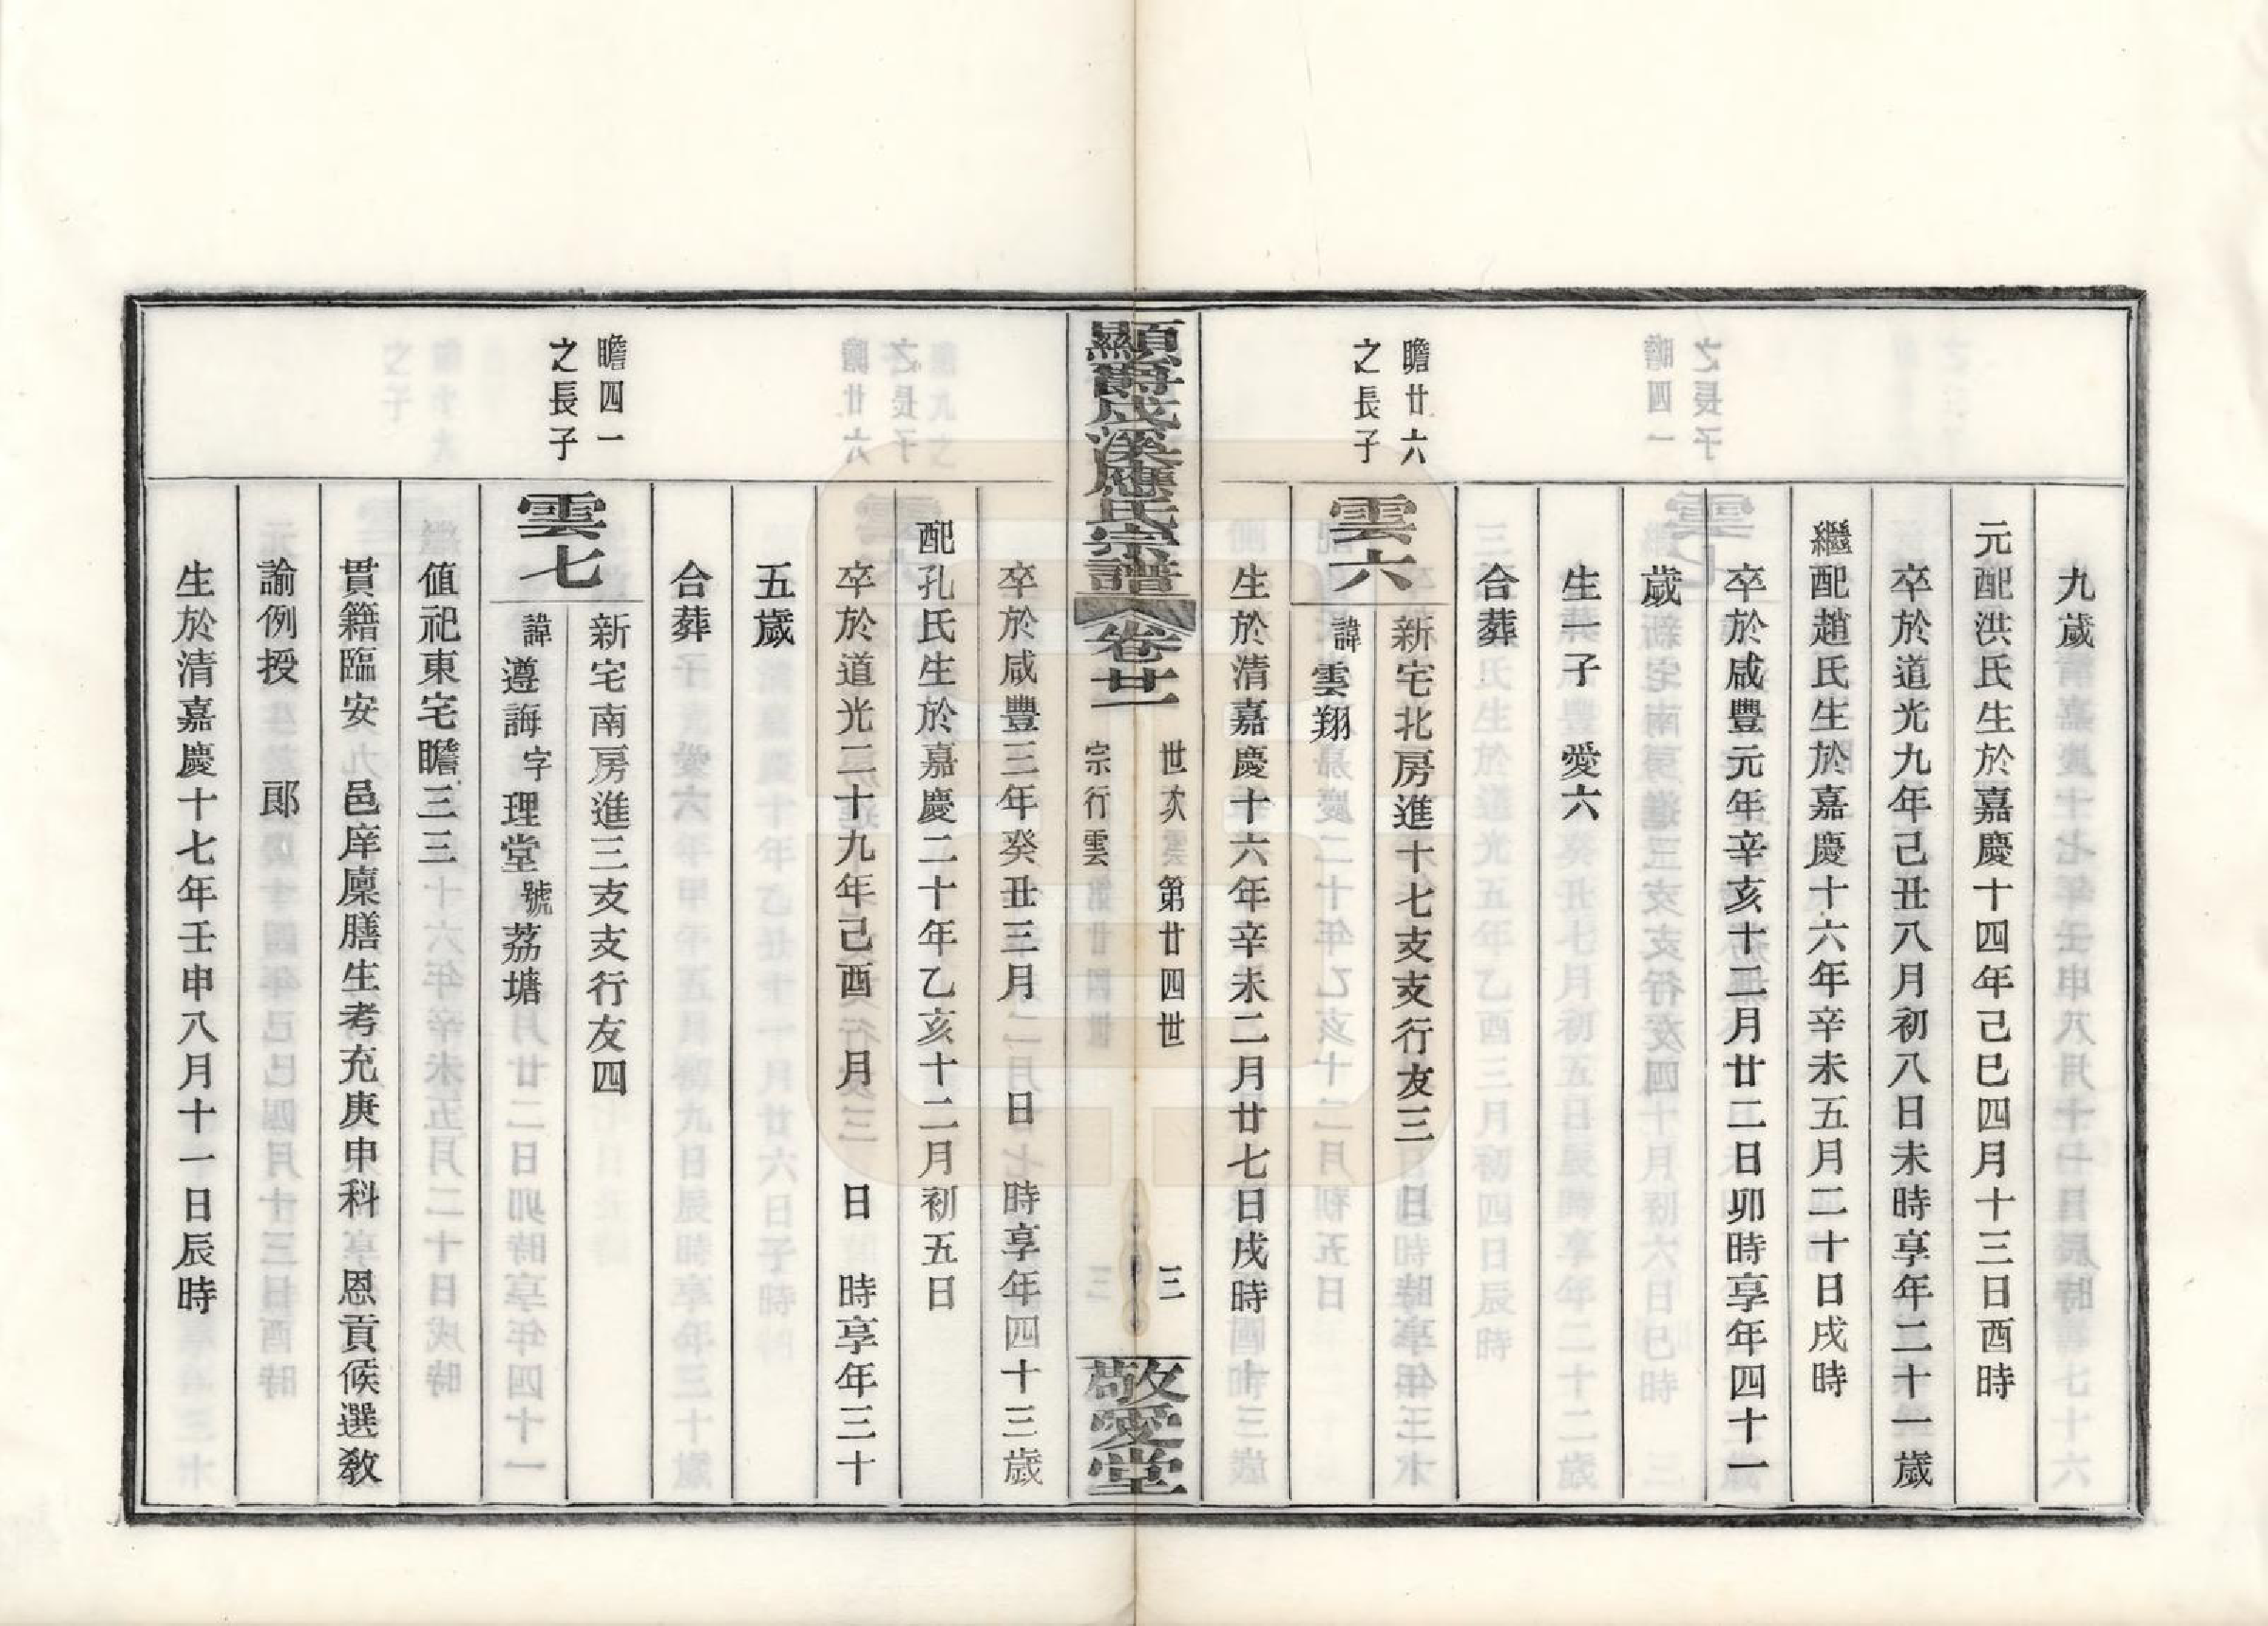 九歲
元配洪氏生於嘉慶十四年己巳四月十三日酉時
卒於道光九年己丑八月初八日未時享年二十一歲
繼配趙氏生於嘉慶十六年辛未五月二十日戌時
卒於咸豐元年辛亥十二月廿二日卯時享年四十一
歲
生一子 愛六
合葬
瞻廿六
之長子
雲六
新宅北房進十七支支行友三
諱雲翔
生於清嘉慶十六年辛未二月廿七日戌時
顯爵成溪應氏宗譜 卷廿一
世次 第廿四世
宗行雲
三
敬愛堂
卒於咸豐三年癸丑三月 日 時享年四十三歲
配孔氏生於嘉慶二十年乙亥十二月初五日
卒於道光二十九年己酉 月 日 時享年三十
五歲
合葬
瞻四一
之長子
雲七
新宅南房進三支支行友四
諱遵誨字理堂號荔塘
值祀東宅瞻三三
貫籍臨安 邑庠廩膳生考充庚申科 恩貢候選敎
諭例授 郎
生於清嘉慶十七年壬申八月十一日辰時